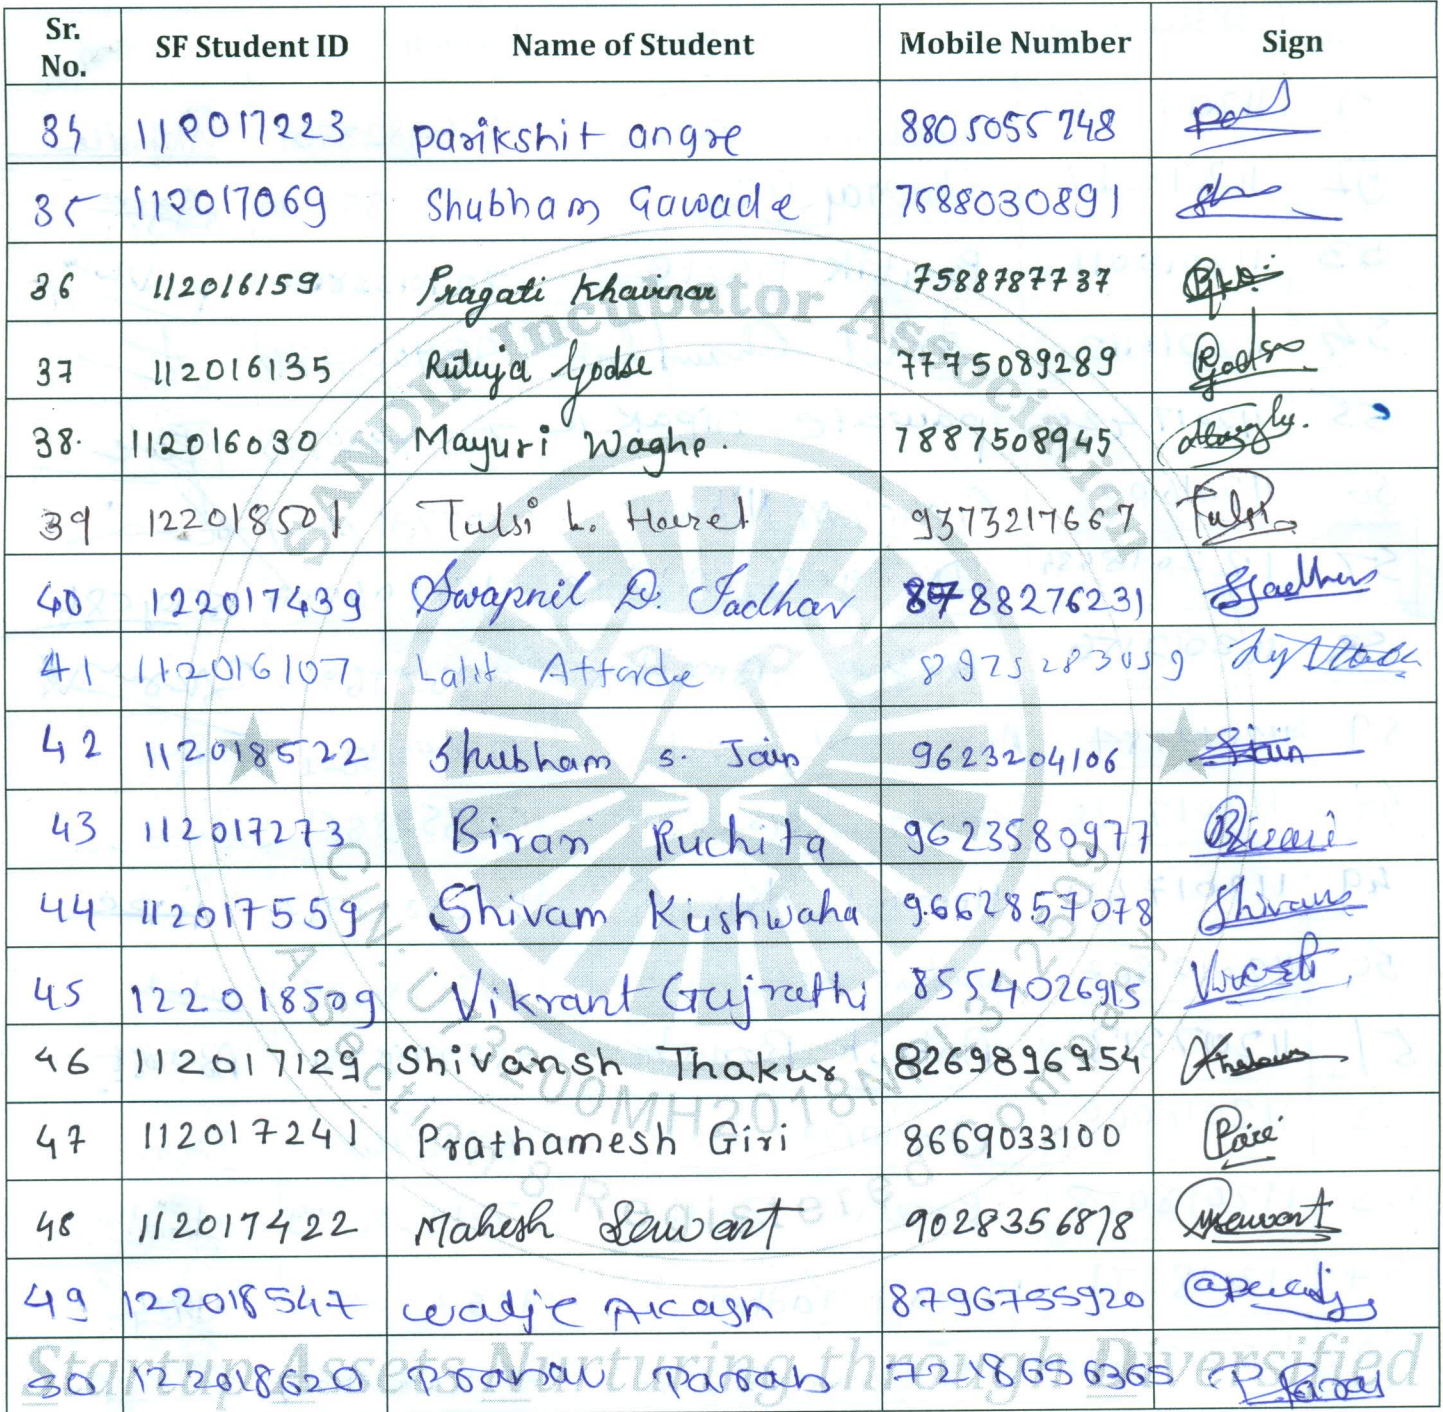 Sr. No. SF Student ID Name of Student Mobile Number Sign
34 112017223 Parikshit angre 8805055748
35 112017069 Shubham Gawade 7588030891
36 112016159 Pragati Khairnar 7588787737
37 112016135 Rutuja Godse 7775089289 RGodse
38. 112016030 Mayuri Waghe. 7887508945
39 122018501 Tulsi L. 9373217667 Tulsi
40 122017439 Swapnil D. Jadhav 8788276231 SJadhav
41 112016107 Lalit Attarde 8975283059
42 112018522 Shubham S. Jain 9623204106 SJain
43 112017273 Birari Ruchita 9623580977 Birari
44 112017559 Shivam Kushwaha 9662857078 Shivam
45 122018509 Vikrant Gujrathi 8554026915
46 112017129 Shivansh Thakur 8269896954
47 112017241 Prathamesh Giri 8669033100
48 112017422 Mahesh Sawant 9028356878 MSawant
49 122018547 Wadje Akash 8796755920
50 122018620 Pranav Parab 7218656365
SANDIP Incubator Association
CIN: U73200MH2018NPL3
A Section 8 Registered Company
Startup Assets Nurturing through Diversified